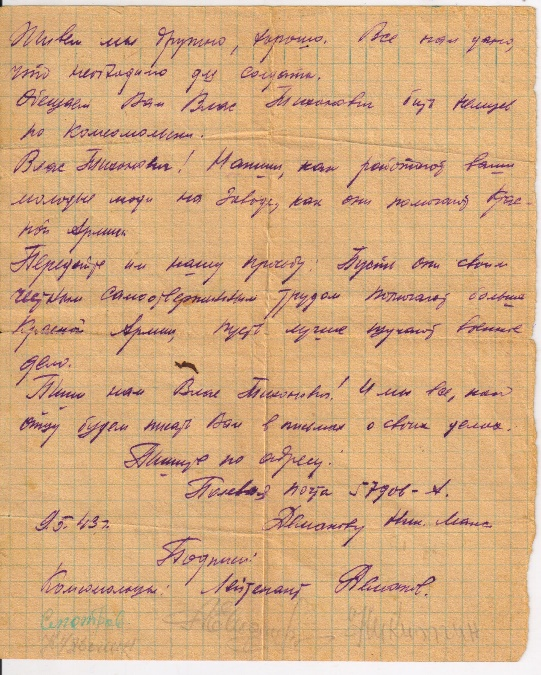 Живем мы дружно, хорошо. Все нам дано,
что необходимо для солдата.
Обещаем Вам Влас Тихонович бить немцев
по Комсомольски.
Влас Тихонович! Напиши, как работают ваши
молодые люди на Заводе, как они помогают Крас-
ной Армии
Передайте им нашу просьбу: Пусть они своим
честным самоотверженным трудом помогают больше
Красной Армии, пусть лучше изучают военное
дело.
Пиши нам Влас Тихонович! И мы все, как
отцу будем писать Вам в письмах о своих делах.
Пишите по адресу:
Полевая почта 57906-А.
9.5.43г. Ник.
Подписи:
Комсомольцы: Лейтенант